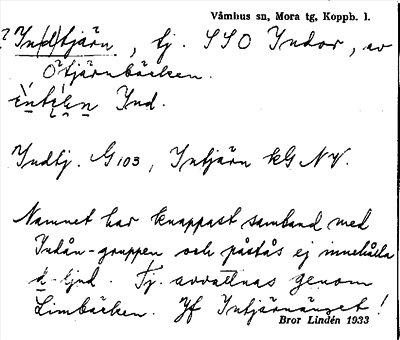 Våmhus sn, Mora tg, Koppb. l.
? In(d)tjärn, tj. SSO Indor, av
Otjärnbäcken.
Ind.
Indtj. G103, Intjärn kG NV.
Namnet har knappast samband med
Indån-gruppen och påstås ej innehålla
d-ljud. Tj. avvattnas genom
Limbäcken. Jf Intjärnänget!
Bror Lindén 1933